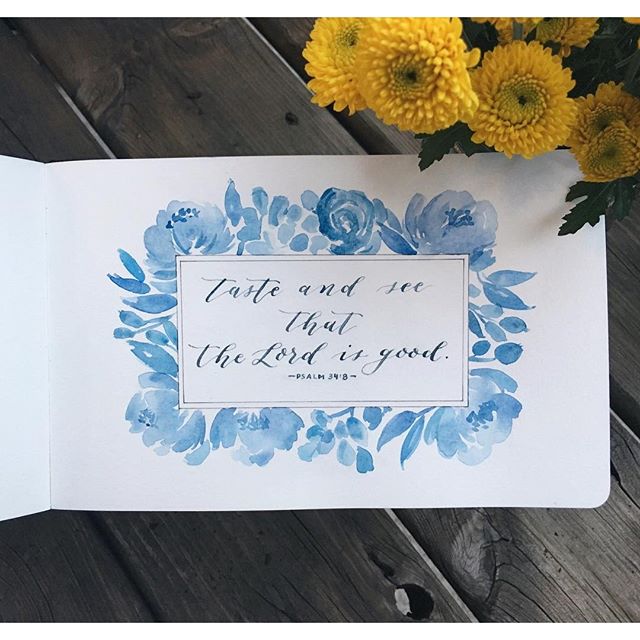 taste and see
that
the Lord is good.
-PSALM 34:8-